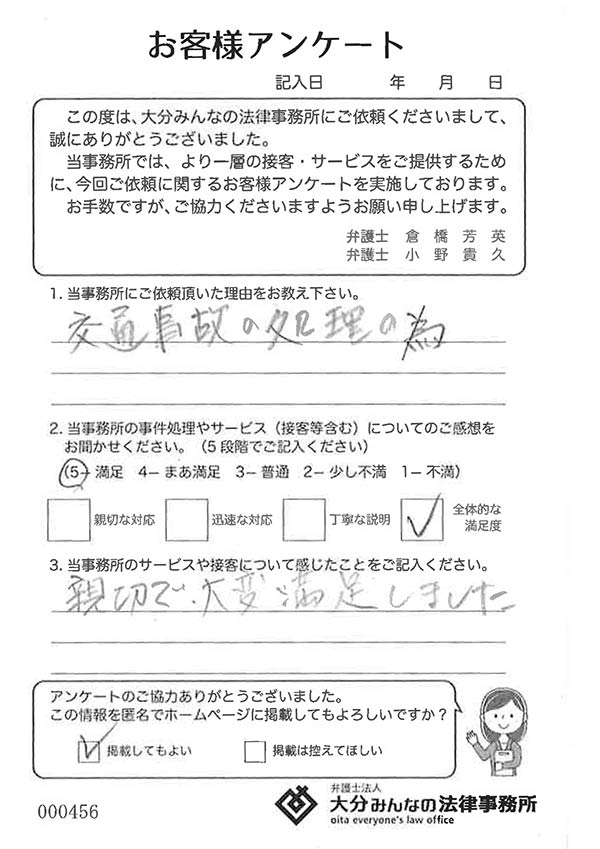 お客様アンケート
記入日　　　年　月　日
この度は、大分みんなの法律事務所にご依頼くださいまして、
誠にありがとうございました。
当事務所では、より一層の接客・サービスをご提供するため
に、今回ご依頼に関するお客様アンケートを実施しております。
お手数ですが、ご協力くださいますようお願い申し上げます。
弁護士　倉　橋　芳　英
弁護士　小　野　貴　久
1. 当事務所にご依頼頂いた理由をお教え下さい。
交通事故の処理の為
2. 当事務所の事件処理やサービス（接客等含む）についてのご感想を
お聞かせください。（5 段階でご記入ください）
(5－ 満足　4－ まあ満足　3－ 普通　2－ 少し不満　1－ 不満）
親切な対応　迅速な対応　丁寧な説明　✓　全体的な
満足度
3. 当事務所のサービスや接客について感じたことをご記入ください。
親切で、大変満足しました
アンケートのご協力ありがとうございました。
この情報を匿名でホームページに掲載してもよろしいですか？
✓ 掲載してもよい　掲載は控えてほしい
弁護士法人
大分みんなの法律事務所
oita everyone's law office
000456